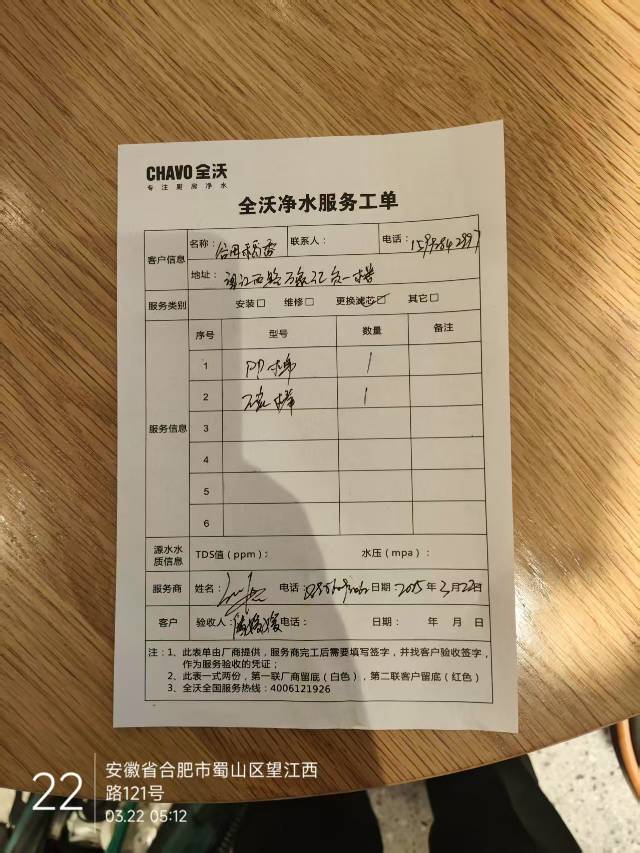 CHAVO 全沃
专注厨房净水
全沃净水服务工单
客户信息 名称： 联系人： 电话：
地址：望江西路万象汇负一楼
服务类别 安装□ 维修□ 更换滤芯☑ 其它□
服务信息 序号 型号 数量 备注
1 PP棉 1
2 1
3
4
5
6
源水水质信息 TDS值（ppm）： 水压（mpa）：
服务商 姓名： 电话： 日期：2025年3月22日
客户 验收人： 电话： 日期： 年 月 日
注：1、此表单由厂商提供，服务商完工后需要填写签字，并找客户验收签字，
作为服务验收的凭证；
2、此表一式两份，第一联厂商留底（白色），第二联客户留底（红色）
3、全沃全国服务热线：4006121926
22
安徽省合肥市蜀山区望江西
路121号
03.22 05:12